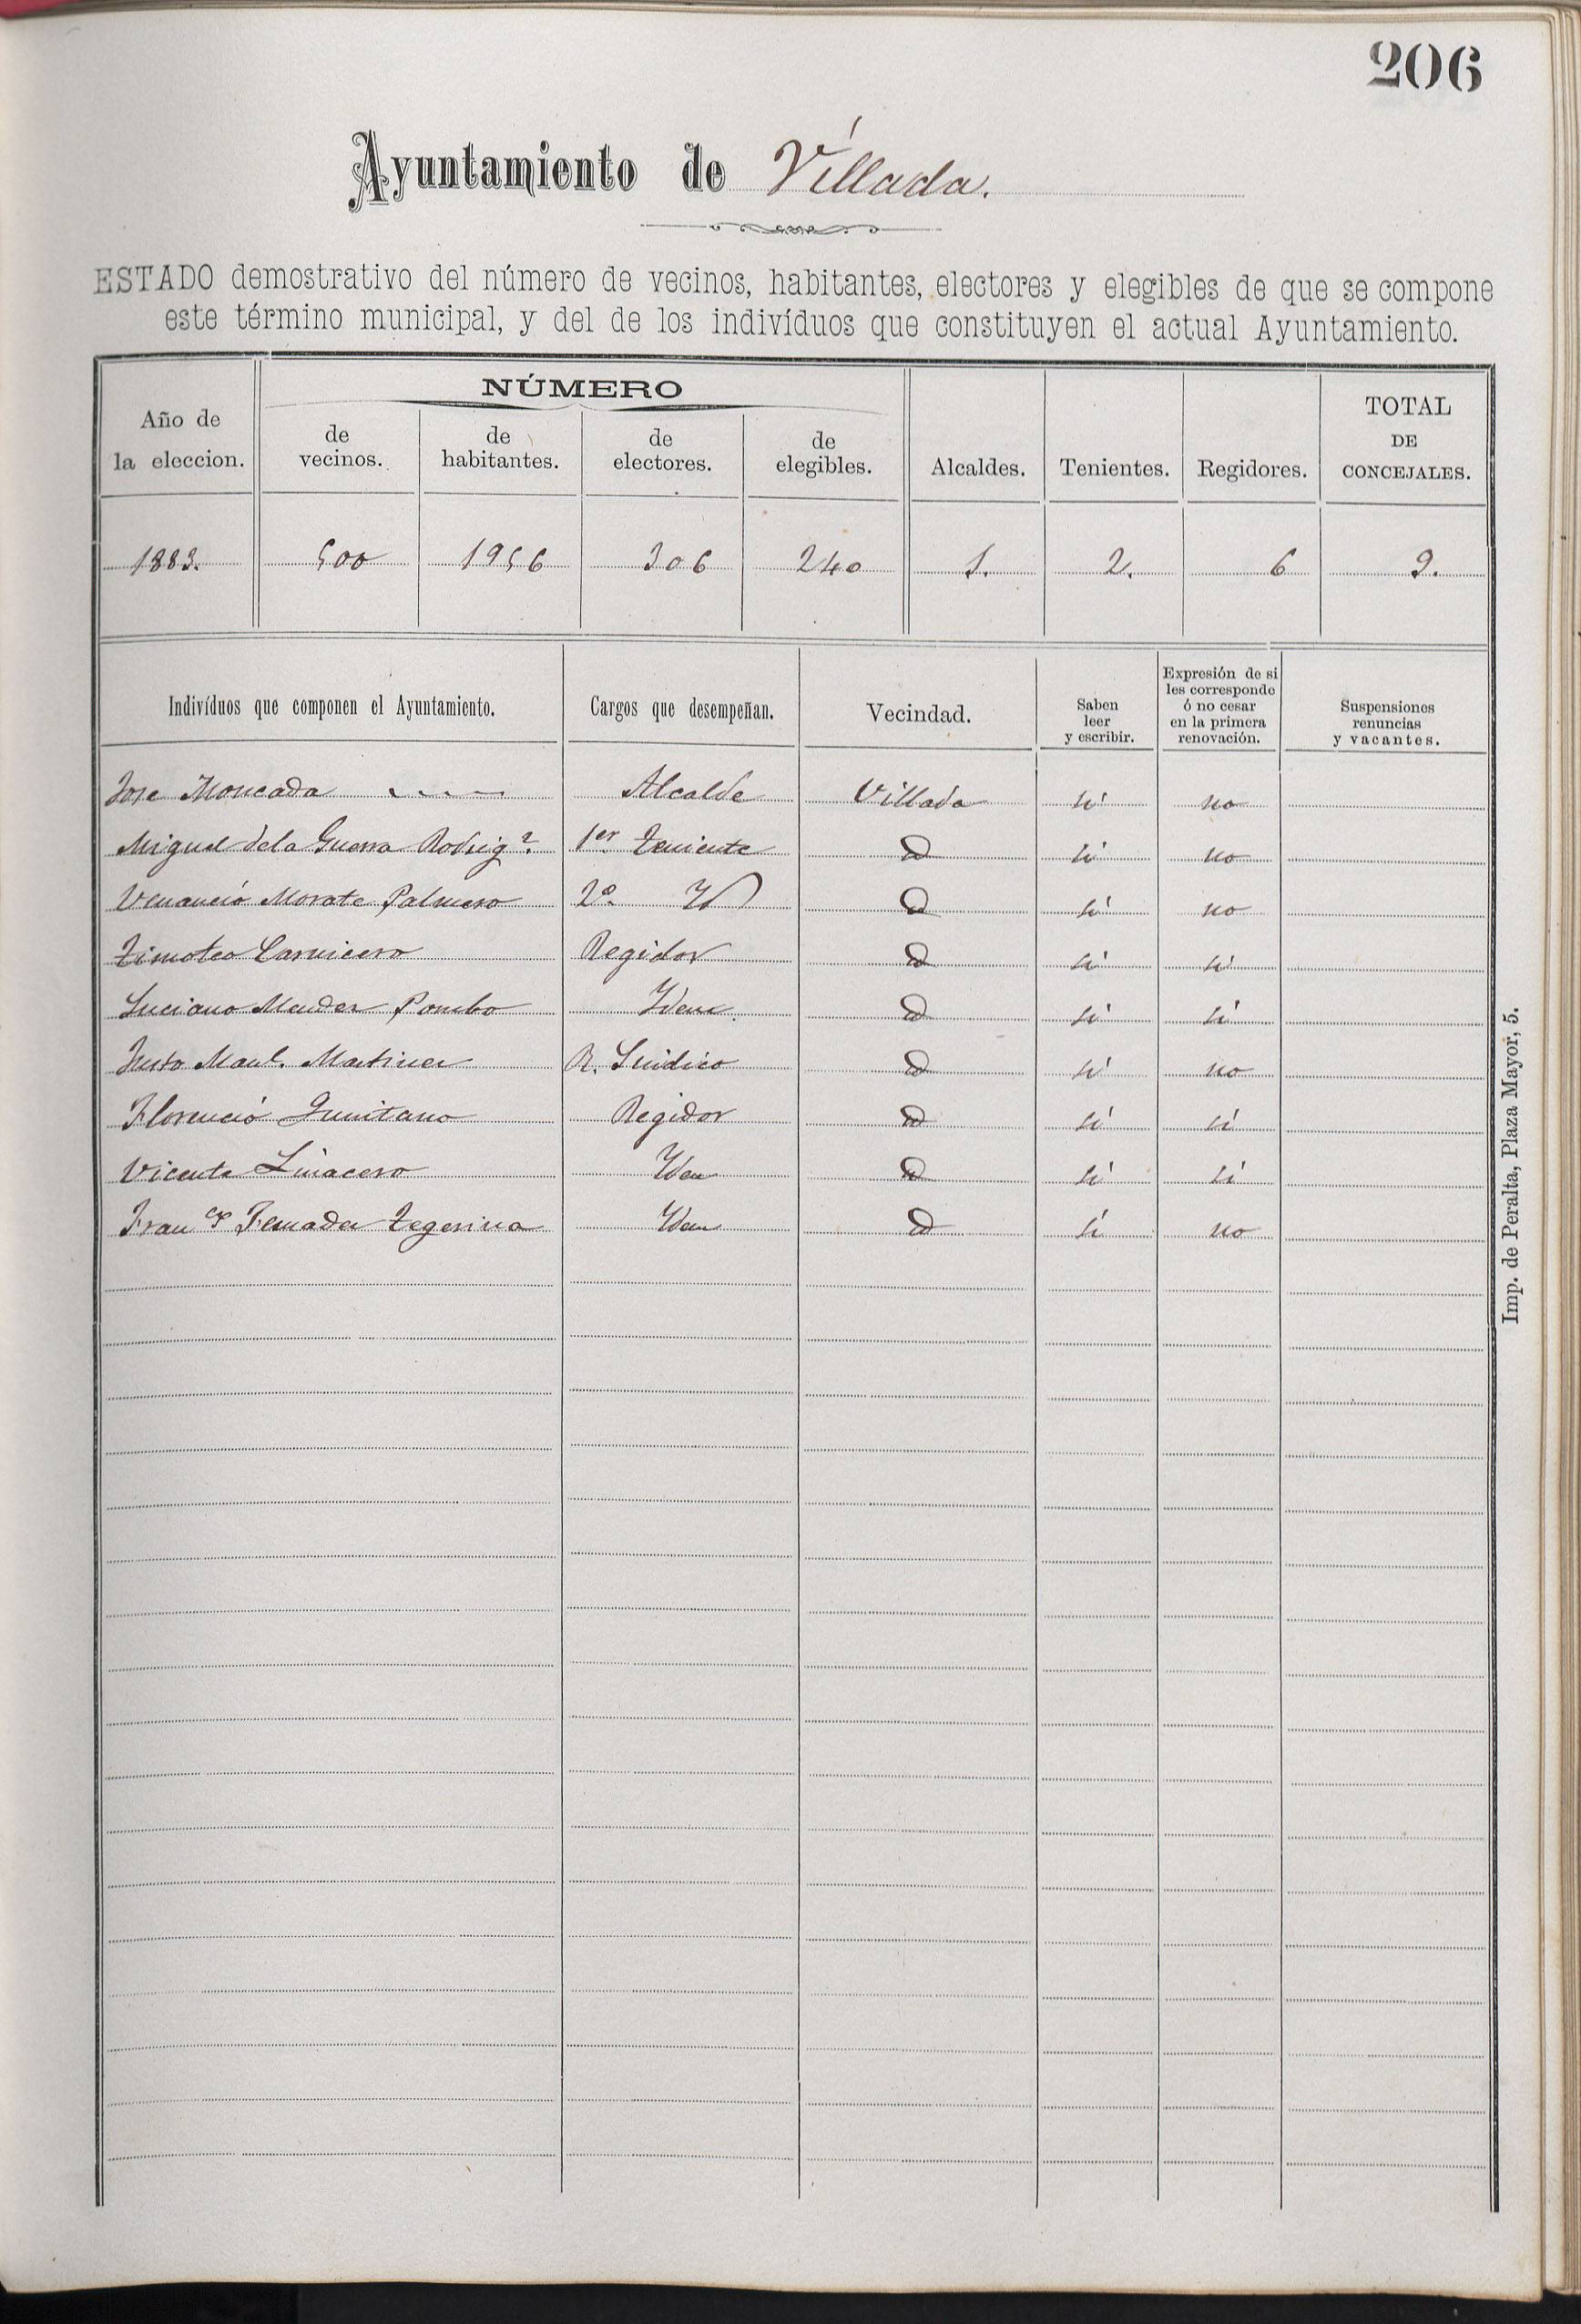 206
Ayuntamiento de Villada.
ESTADO demostrativo del número de vecinos, habitantes, electores y elegibles de que se compone
este término municipal, y del de los indivíduos que constituyen el actual Ayuntamiento.
Año de la eleccion. NÚMERO de vecinos. de habitantes. de electores. de elegibles. Alcaldes. Tenientes. Regidores. TOTAL DE CONCEJALES.
1883. 500 1956 306 240 1. 2. 6 9.
Indivíduos que componen el Ayuntamiento. Cargos que desempeñan. Vecindad. Saben leer y escribir. Expresión de si les corresponde ó no cesar en la primera renovación. Suspensiones renuncias y vacantes.
Jose Moncada Alcalde Villada si no
Miguel de la Guerra Rodrigz. 1er. Teniente id si no
Venancio Morate Palmero 2º. Yd id si no
Timoteo Carnicero Regidor id si si
Luciano Mendez Pombo Ydem. id si si
Justo Manl. Martinez R. Sindico id si no
Florencio Quintano Regidor id si si
Vicente Linacero Ydem id si si
Franco Fernadez Tegerina Ydem id si no
Imp. de Peralta, Plaza Mayor, 5.